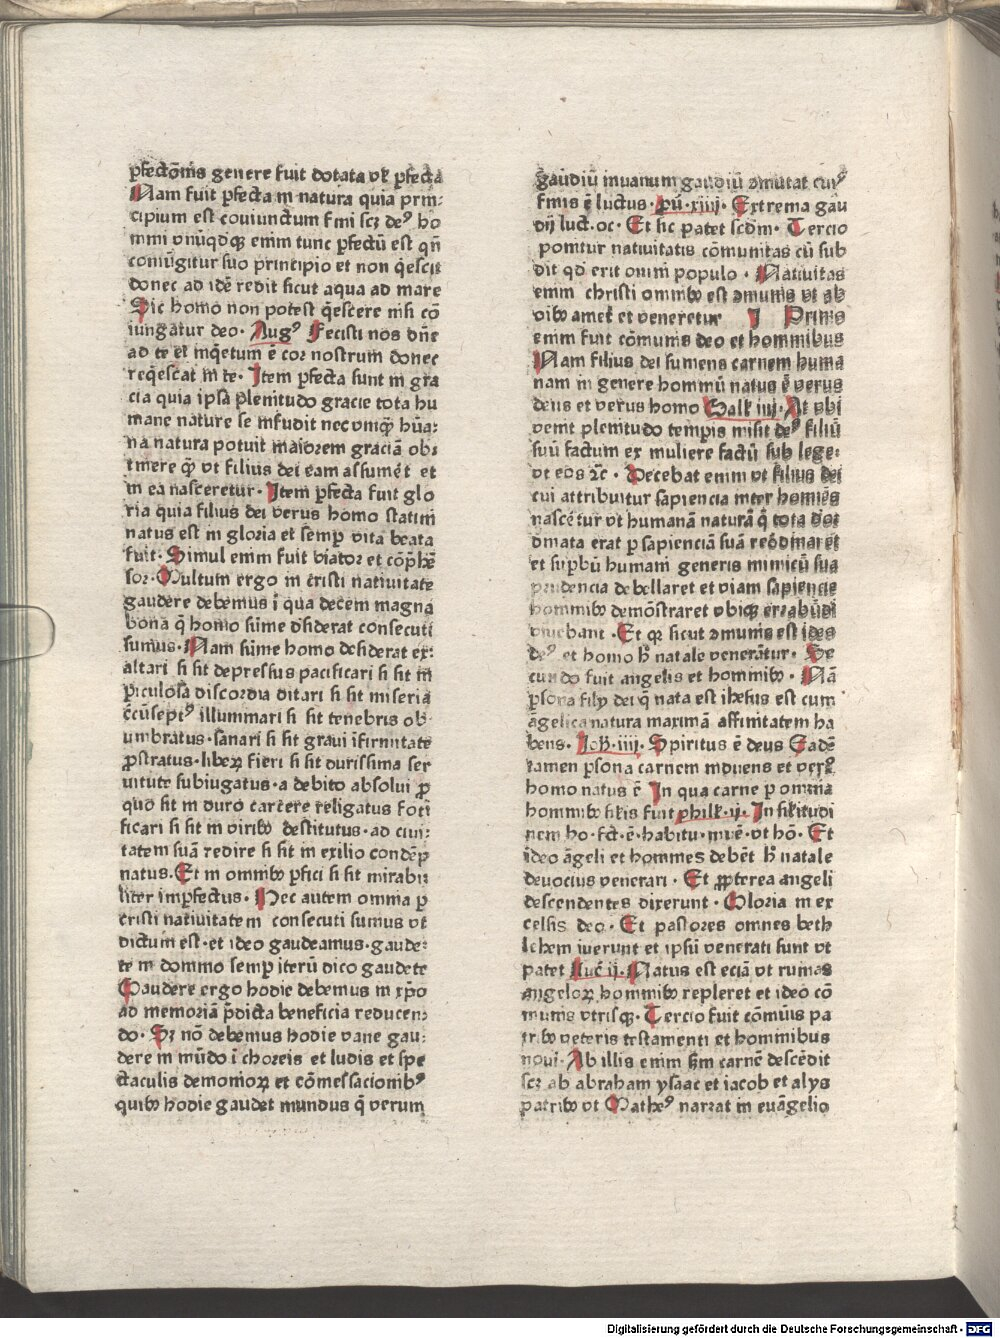 ꝑfectōnis genere fuit dotata vꝫ ꝑfecta
Nam fuit ꝑfecta in natura quia prin⸗
cipium est coniunctum fini scꝫ deꝰ ho
mini vnūqdqꝫ enim tunc ꝑfectū est qn̄
coniūgitur suo principio et non q̄escit
donec ad idē redit sicut aqua ad mare
Sic homo non potest q̄escere nisi cō
iungatur deo· Augꝰ Fecisti nos dn̄e
ad te et inq̄etum ē cor nostrum donec
reqͥescat in te· Item ꝑfecta sunt in gra
cia quia ipsa plenitudo gracie tota hu
mane nature se infudit nec vnqꝫ hūa⸗
na natura potuit maiorem graciā obi
tinere qꝫ vt filius dei eam assumēt et
in ea nasceretur· Item ꝑfecta fuit glo
ria quia filius dei verus homo statim
natus est in gloria et semꝑ vita beata
fuit· Simul enim fuit viator et cōp̄hē
sor· Multum ergo in cristi natiuitate
gaudere debemus ī qua decem magna
bona q̄ homo sūme dsiderat consecuti
sumus· Nam sūme homo desiderat ex⸗
altari si sit depressus pacificari si sit in
ꝑiculosa discordia ditari si sit miseria
c̄cūseptꝰ illuminari si sit tenebris ob⸗
umbratus·sanari si sit graui īfirmitate
ꝓstratus·liberꝫ fieri si sit durissima ser
uitute subiugatus·a debito absolui ꝓ
quo sit in duro carcere religatus forti
ficari si sit in viribꝫ destitutus·ad ciui⸗
tatem suā redire si sit in exilio condēp
natus. Et in omnibꝫ ꝑfici si sit mirabi
liter imꝑfectus· Hec autem omnia ꝑ
cristi natiuitatem consecuti sumus vt
dictum est·et ideo gaudeamus·gaude⸗
te in domino semꝑ iterū dico gaudete
Gaudere ergo hodie debemus in xp̄o
ad memoriā p̄dicta beneficia reducen⸗
do· Sꝫ nō debemus hodie vane gau⸗
dere in mūdo ī choreis et ludis et spe
ctaculis demonioꝝ et cōmessacionibꝰ
quibꝫ hodie gaudet mundus q̄ verum
gaudiū inuanum gaudiū ꝯmutat cuiꝰ
finis ē luctus· pū·xiiij· Extrema gau
dij luct.oc· Et sic patet scdm· Tercio
ponitur natiuitatis cōmunitas cū sub
dit qd erit omni populo· Natiuitas
enim christi omnibꝫ est ꝯmunis vt ab
oibꝫ amet̄ et veneretur I Primo
enim fuit cōmunis deo et hominibus
Nam filius dei sumens carnem huma
nam in genere hominū natus ē verus
deus et verus homo Gall iiij· At vbi
venit plenitudo temꝑis misit deꝰ filiū
suū factum ex muliere factū sub lege·
vt eos ꝛc· Decebat enim vt filius dei
cui attribuitur sapiencia inter homies
nascētur vt humanā naturā q̄
dinata erat ꝑ sapienciā suā
et suꝑbū humani generis inimicū sua
prudencia debellaret et viam sapiencie
hominibꝫ demōstraret vbiqꝫ
viuebant· Et qꝫ sicut ꝯmunis est ideo
deꝰ et homo h̄ natale venerātur· Se
cundo fuit angelis et hominibꝫ· Nā
ꝑsona filij dei q̄ nata est ihesus est cum
āgelica natura maximā affinitatem ha
bens· Ioh̄·iiij· Spiritus ē deus Eadē
tamen ꝑsona carnem induens et verꝰ
homo natus ē In qua carne ꝑ omnia
hominibꝫ silis fuit philꝫ·ij· In silitudi
nem ho·fct̄·ē·habitu·inuē·vt hō· Et
ideo āgeli et homines debēt h̄ natale
deuocius venerari· Et ꝓpterea angeli
descendentes dixerunt· Gloria in ex
celsis deo· Et pastores omnes beth
lehem iuerunt et ipsū venerati sunt vt
patet Luc̄ ij· Natus est eciā vt ruinas
angeloꝝ hominibꝫ repleret et ideo cō
munis vtrisqꝫ· Tercio fuit cōmūis pa
tribꝫ veteris testamenti et hominibus
noui· Ab illis enim sꝫm carnē descēdit
scꝫ ab abraham ysaac et iacob et alys
patribꝫ vt Matheꝰ narrat in euāgelio
Digitalisierung gefördert durch die Deutsche Forschungsgemeinschaft - DFG